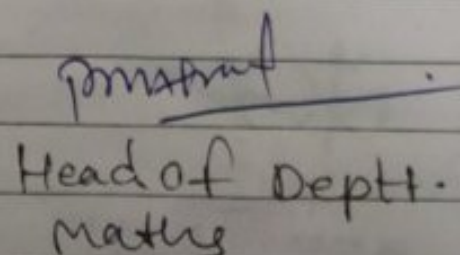 Head of Deptt.
Maths